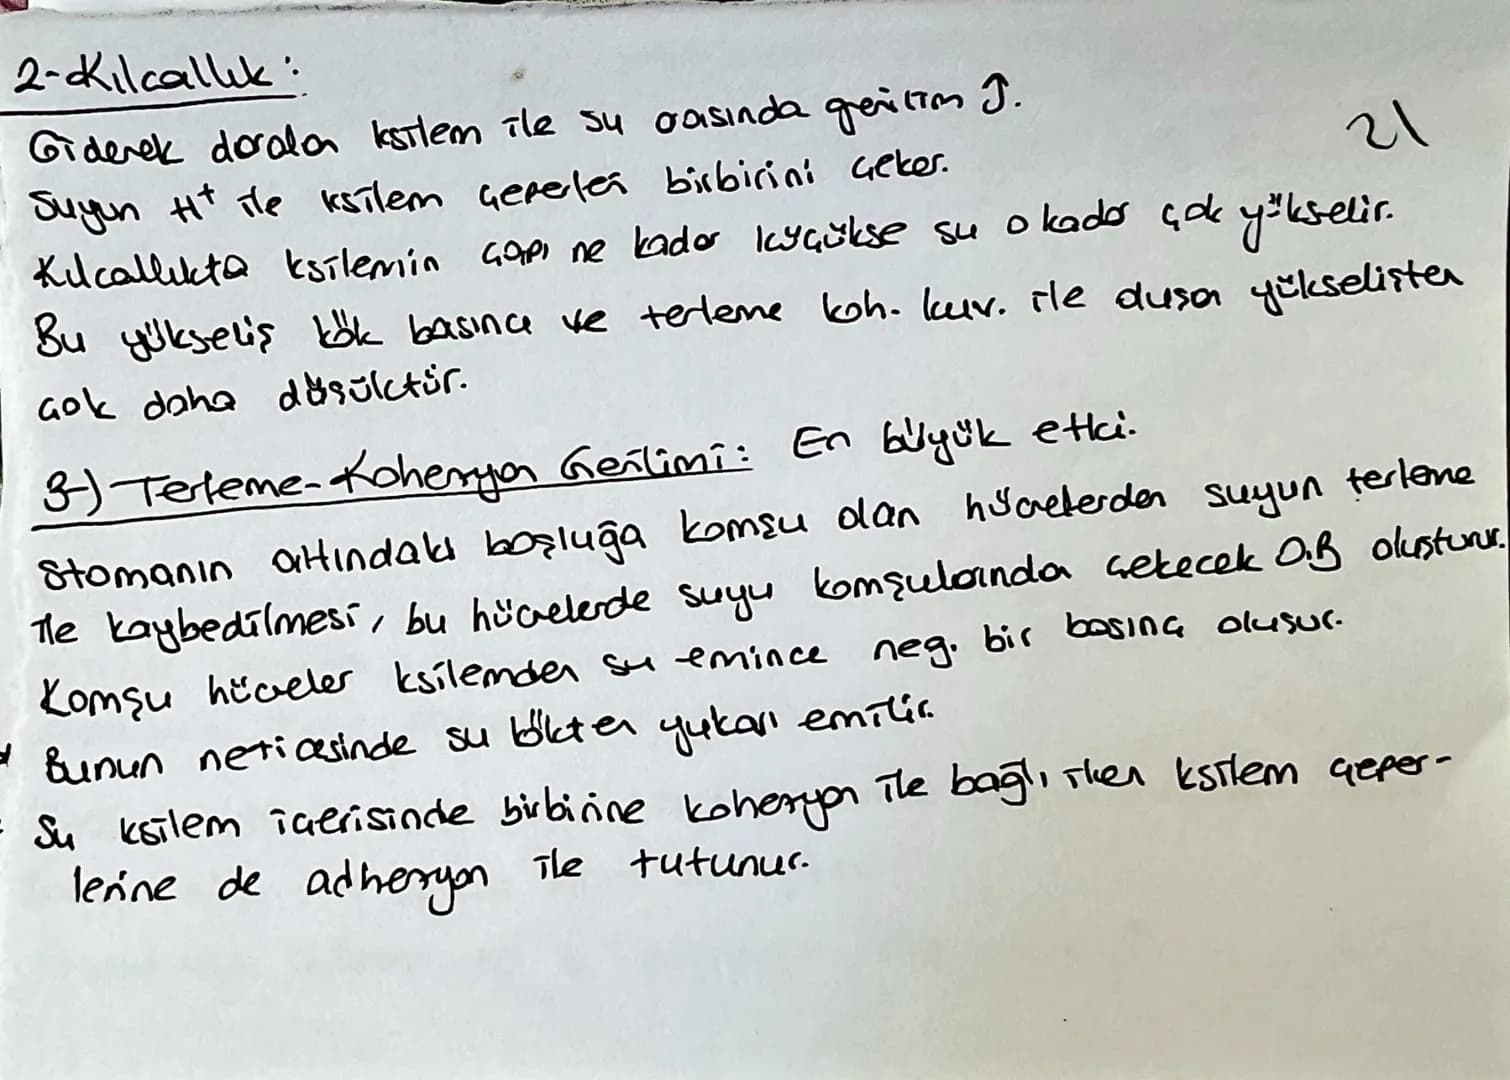 2-Kılcallık:
Giderek daralan ksilem ile su arasında gerilim ↑.
21
Suyun H⁺ ile ksilem çeperleri birbirini çeker.
Kılcallıkta ksilemin çapı ne kadar küçükse su o kadar çok yükselir.
Bu yükseliş kök basıncı ve terleme koh. kuv. ile duşan yükselişten
çok daha düşüktür.
3-) Terleme-Kohezyon Gerilimi: En büyük etki.
Stomanın altındaki boşluğa komşu olan hücrelerden suyun terleme
ile kaybedilmesi, bu hücrelerde suyu komşularından çekecek O.B oluşturur.
Komşu hücreler ksilemden su emince neg. bir basınç oluşur.
Bunun neticesinde su kökten yukarı emilir.
Su ksilem içerisinde birbirine kohezyon ile bağlı iken ksilem çeper-
lerine de adhezyon ile tutunur.